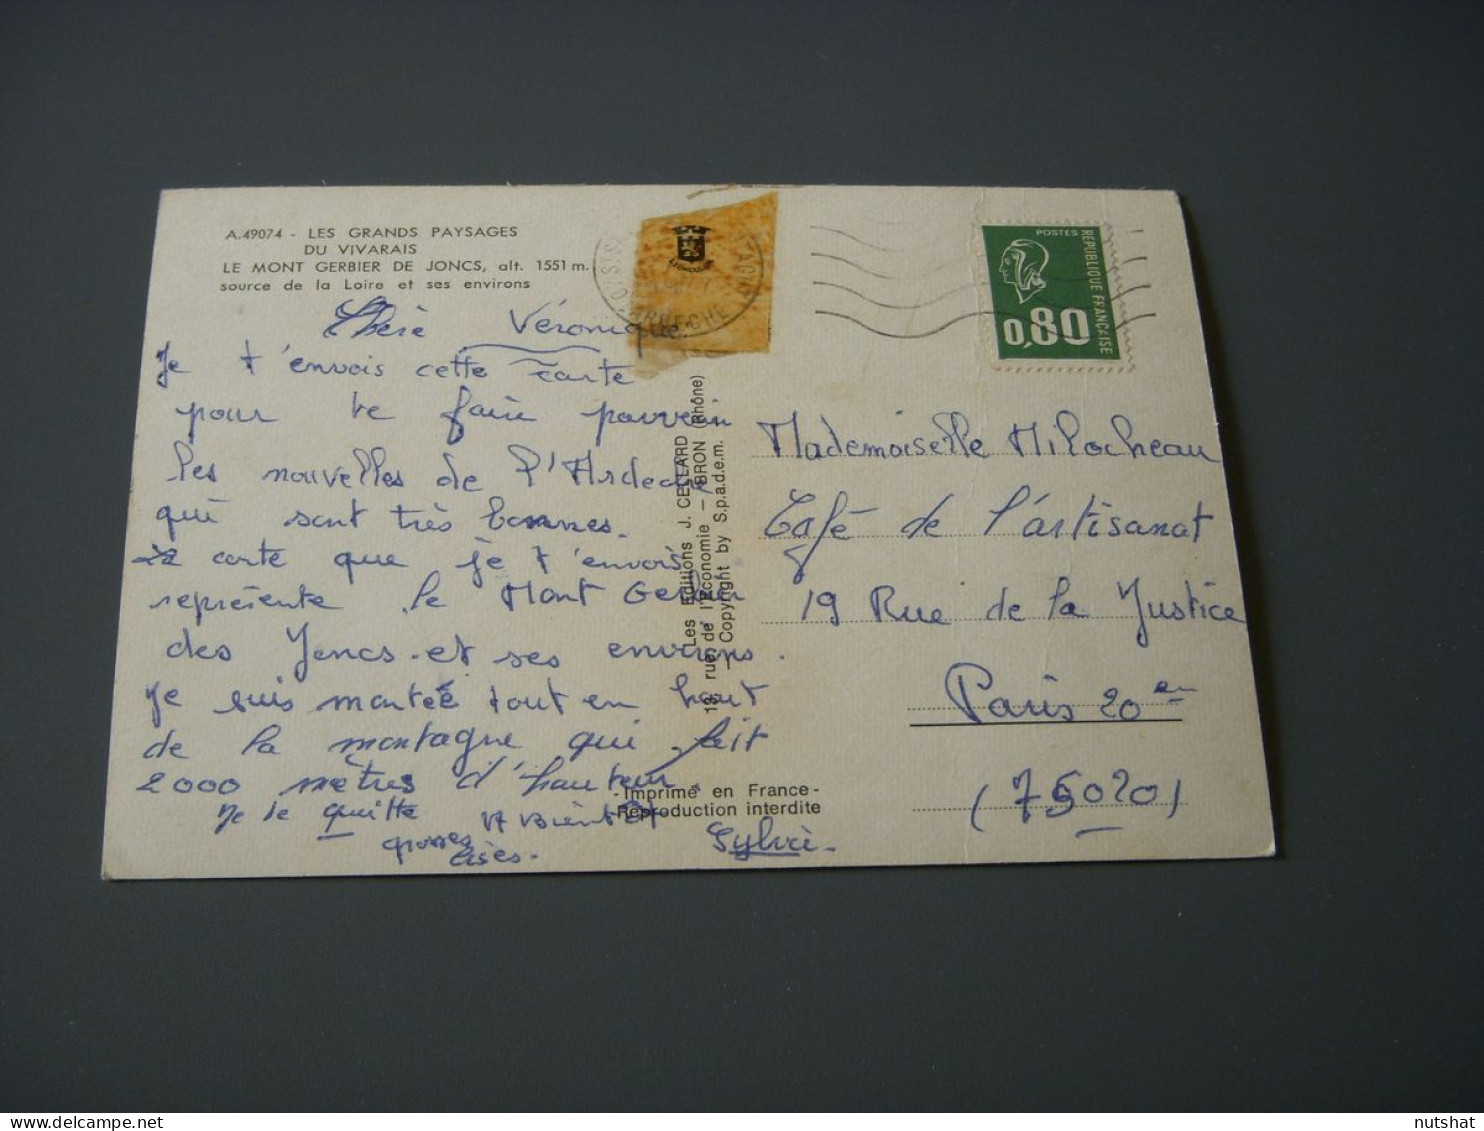 A.49074 - LES GRANDS PAYSAGES
DU VIVARAIS
LE MONT GERBIER DE JONCS, alt. 1551 m.
source de la Loire et ses environs
Chère Véronique
Je t'envois cette carte
pour te faire parvenir
les nouvelles de l'Ardeche
qui sont très bonnes.
la carte que je t'envois
représente le Mont Gerbier
des Joncs et ses environs.
Je suis montée tout en haut
de la montagne qui fait
2000 mètres d'hauteur.
Je te quitte
A Bientôt
grosses
bises.
Sylvie.
Les Editions J. CELLARD
19, rue de l'Economie - BRON (Rhône)
- Copyright by S.p.a.d.e.m.
- Imprimé en France -
Reproduction interdite
ARDECHE
POSTES
REPUBLIQUE FRANÇAISE
0,80
Mademoiselle Milocheau
Café de l'artisanat
19 Rue de la Justice
Paris 20 en
(75020)
nutshat